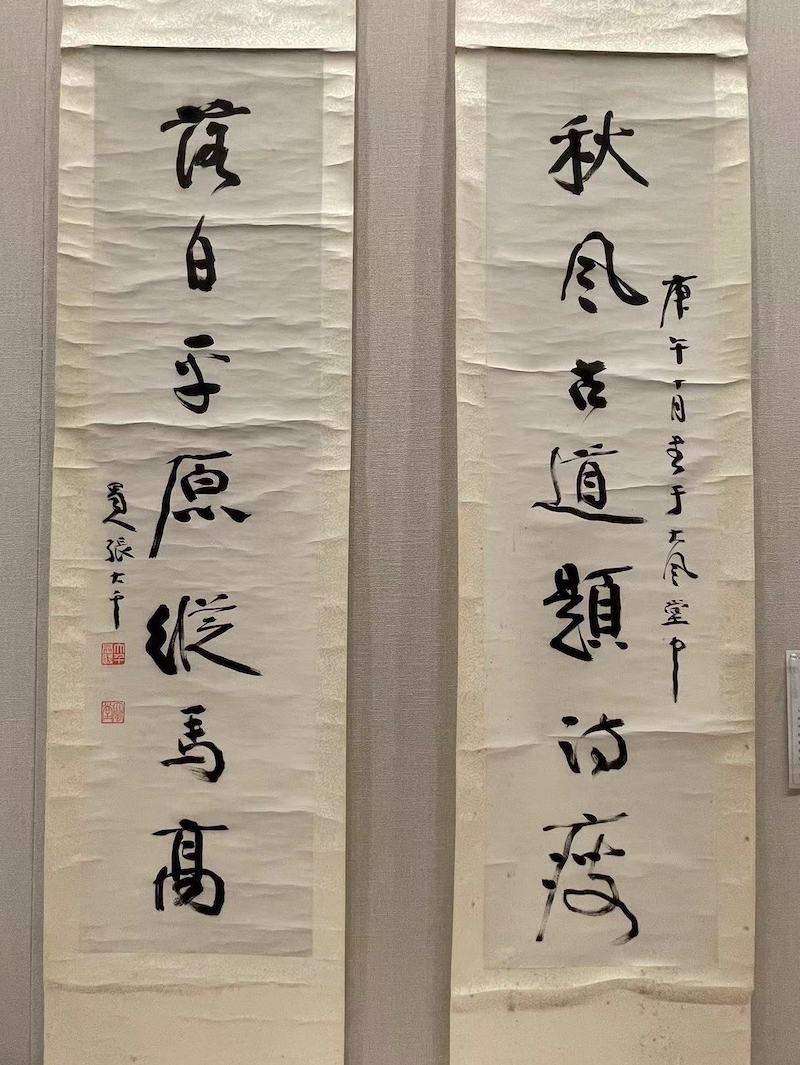 秋風古道題詩瘦
庚午十月書于大風堂中
落日平原縱馬高
蜀人張大千